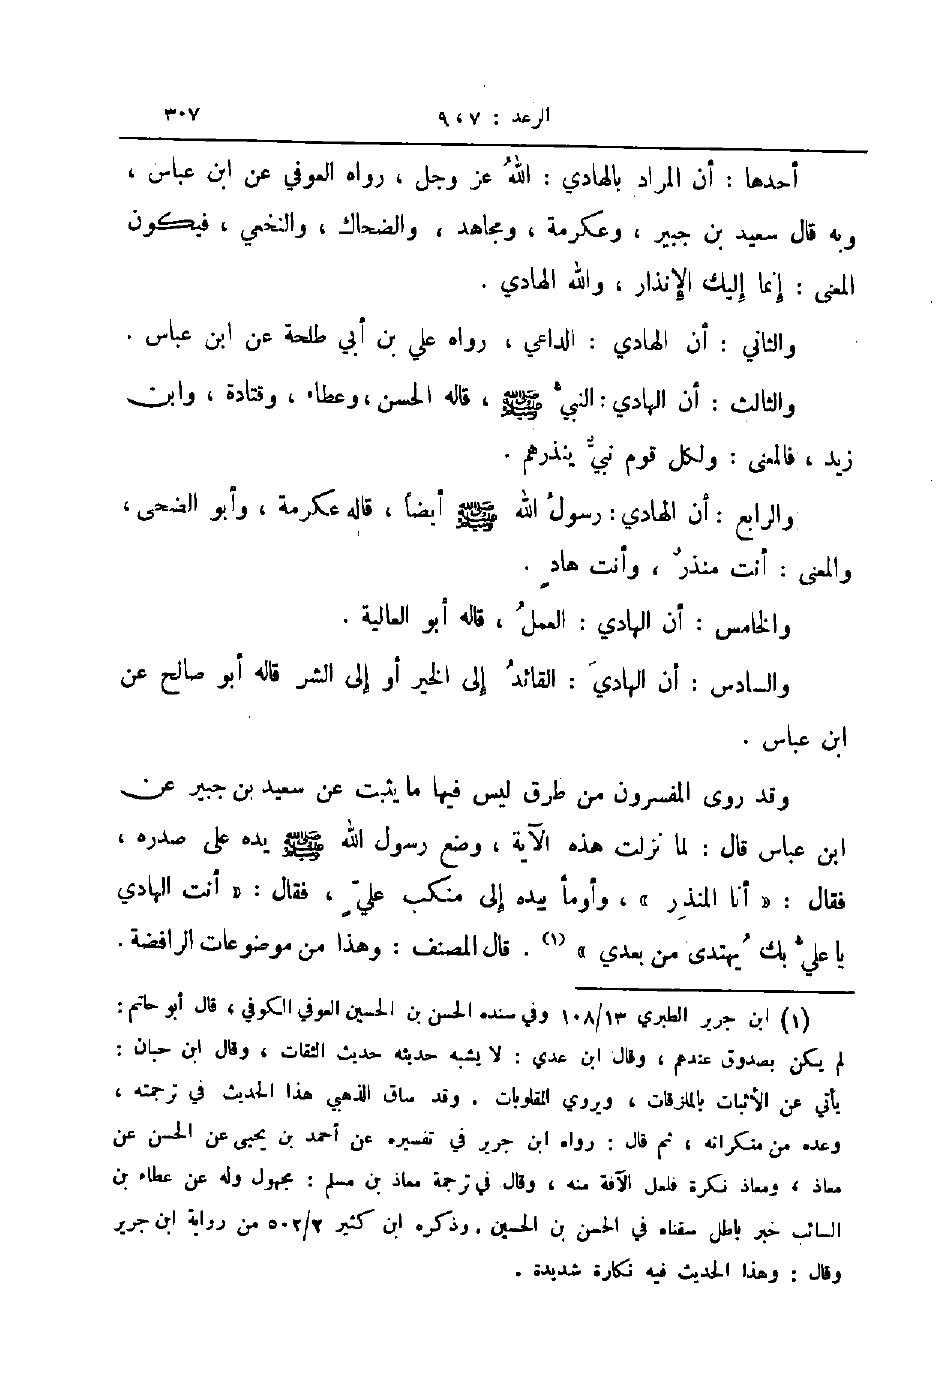 الرعد : ٧ ، ٩ ٣٠٧
أحدها : أن المراد بالهادي : اللهُ عز وجل ، رواه العوفي عن ابن عباس ،
وبه قال سعيد بن جبير ، وعكرمة ، ومجاهد ، والضحاك ، والنخعي ، فيكون
المعنى : إنما إليك الإنذار ، والله الهادي .
والثاني : أن الهادي : الداعي ، رواه علي بن أبي طلحة عن ابن عباس .
والثالث : أن الهادي : النبيُّ ﷺ ، قاله الحسن ، وعطاء ، وقتادة ، وابن
زيد ، فالمعنى : ولكل قوم نبيٌّ ينذرهم .
والرابع : أن الهادي : رسولُ الله ﷺ أيضاً ، قاله عكرمة ، وأبو الضحى ،
والمعنى : أنت منذرٌ ، وأنت هادٍ .
والخامس : أن الهادي : العملُ ، قاله أبو العالية .
والسادس : أن الهاديَ : القائدُ إلى الخير أو إلى الشر قاله أبو صالح عن
ابن عباس .
وقد روى المفسرون من طرق ليس فيها ما يثبت عن سعيد بن جبير عن
ابن عباس قال : لما نزلت هذه الآية ، وضع رسول الله ﷺ يده على صدره ،
فقال : « أنا المنذِر » ، وأومأ بيده إلى منكب عليٍّ ، فقال : « أنت الهادي
يا عليُّ بك يُهتدى من بعدي » (١) . قال المصنف : وهذا من موضوعات الرافضة .
(١) ابن جرير الطبري ١٠٨/١٣ وفي سنده الحسن بن الحسين العوفي الكوفي ، قال أبو حاتم :
لم يكن بصدوق عندهم ، وقال ابن عدي : لا يشبه حديثه حديث الثقات ، وقال ابن حبان :
يأتي عن الأثبات بالملزقات ، ويروي المقلوبات . وقد ساق الذهبي هذا الحديث في ترجمته ،
وعده من منكراته ، ثم قال : رواه ابن جرير في تفسيره عن أحمد بن يحيى عن الحسن عن
معاذ ، ومعاذ نكرة فلعل الآفة منه ، وقال في ترجمة معاذ بن مسلم : مجهول وله عن عطاء بن
السائب خبر باطل سقناه في الحسن بن الحسين . وذكره ابن كثير ٥٠٢/٢ من رواية ابن جرير
وقال : وهذا الحديث فيه نكارة شديدة .